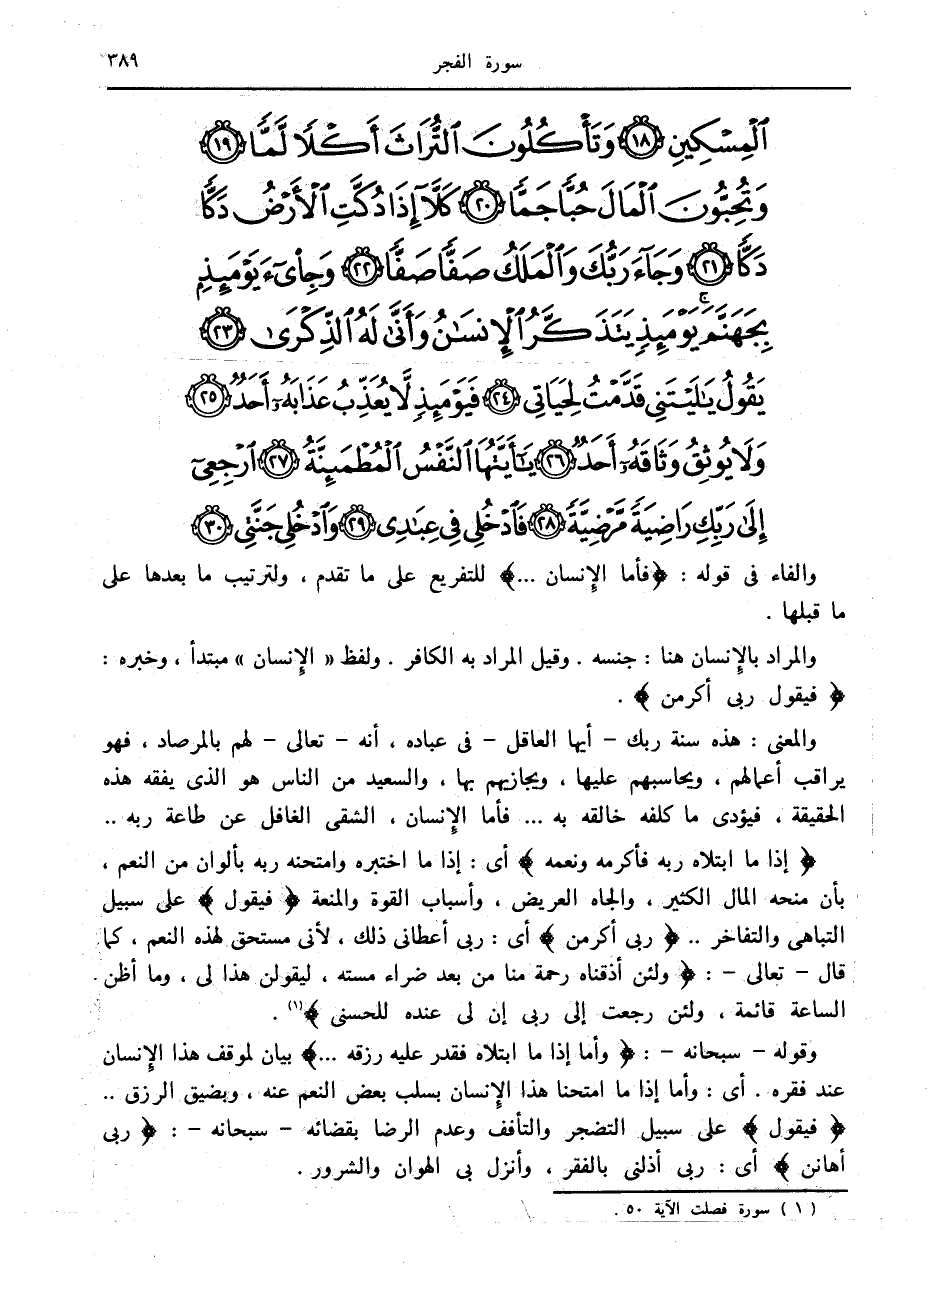 سورة الفجر ٣٨٩
ٱلْمِسْكِينِ ١٨ وَتَأْكُلُونَ ٱلتُّرَاثَ أَكْلًا لَّمًّا ١٩
وَتُحِبُّونَ ٱلْمَالَ حُبًّا جَمًّا ٢٠ كَلَّآ إِذَا دُكَّتِ ٱلْأَرْضُ دَكًّا
دَكًّا ٢١ وَجَآءَ رَبُّكَ وَٱلْمَلَكُ صَفًّا صَفًّا ٢٢ وَجِا۟ىٓءَ يَوْمَئِذٍۭ
بِجَهَنَّمَ ۚ يَوْمَئِذٍ يَتَذَكَّرُ ٱلْإِنسَٰنُ وَأَنَّىٰ لَهُ ٱلذِّكْرَىٰ ٢٣
يَقُولُ يَٰلَيْتَنِى قَدَّمْتُ لِحَيَاتِى ٢٤ فَيَوْمَئِذٍ لَّا يُعَذِّبُ عَذَابَهُۥٓ أَحَدٌ ٢٥
وَلَا يُوثِقُ وَثَاقَهُۥٓ أَحَدٌ ٢٦ يَٰٓأَيَّتُهَا ٱلنَّفْسُ ٱلْمُطْمَئِنَّةُ ٢٧ ٱرْجِعِىٓ
إِلَىٰ رَبِّكِ رَاضِيَةً مَّرْضِيَّةً ٢٨ فَٱدْخُلِى فِى عِبَٰدِى ٢٩ وَٱدْخُلِى جَنَّتِى ٣٠
والفاء فى قوله : ﴿فأما الإِنسان ...﴾ للتفريع على ما تقدم ، ولترتيب ما بعدها على
ما قبلها .
والمراد بالإِنسان هنا : جنسه . وقيل المراد به الكافر . ولفظ « الإِنسان » مبتدأ ، وخبره :
﴿ فيقول ربى أكرمن ﴾ .
والمعنى : هذه سنة ربك – أيها العاقل – فى عباده ، أنه – تعالى – لهم بالمرصاد ، فهو
يراقب أعمالهم ، ويحاسبهم عليها ، ويجازيهم بها ، والسعيد من الناس هو الذى يفقه هذه
الحقيقة ، فيؤدى ما كلفه خالقه به ... فأما الإِنسان ، الشقى الغافل عن طاعة ربه ..
﴿ إذا ما ابتلاه ربه فأكرمه ونعمه ﴾ أى : إذا ما اختبره وامتحنه ربه بألوان من النعم ،
بأن منحه المال الكثير ، والجاه العريض ، وأسباب القوة والمنعة ﴿ فيقول ﴾ على سبيل
التباهى والتفاخر .. ﴿ ربى أكرمن ﴾ أى : ربى أعطانى ذلك ، لأنى مستحق لهذه النعم ، كما
قال – تعالى – : ﴿ ولئن أذقناه رحمة منا من بعد ضراء مسته ، ليقولن هذا لى ، وما أظن
الساعة قائمة ، ولئن رجعت إلى ربى إن لى عنده للحسنى ﴾(١) .
وقوله – سبحانه – : ﴿ وأما إذا ما ابتلاه فقدر عليه رزقه ...﴾ بيان لموقف هذا الإِنسان
عند فقره . أى : وأما إذا ما امتحنا هذا الإِنسان بسلب بعض النعم عنه ، وبضيق الرزق ..
﴿ فيقول ﴾ على سبيل التضجر والتأفف وعدم الرضا بقضائه – سبحانه – : ﴿ ربى
أهانن ﴾ أى : ربى أذلنى بالفقر ، وأنزل بى الهوان والشرور .
( ١ ) سورة فصلت الآية ٥٠ .